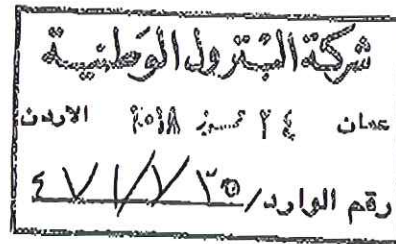 شركة البترول الوطنية
عمان ٢٤ تموز ٢٠١٨ الاردن
رقم الوارد/